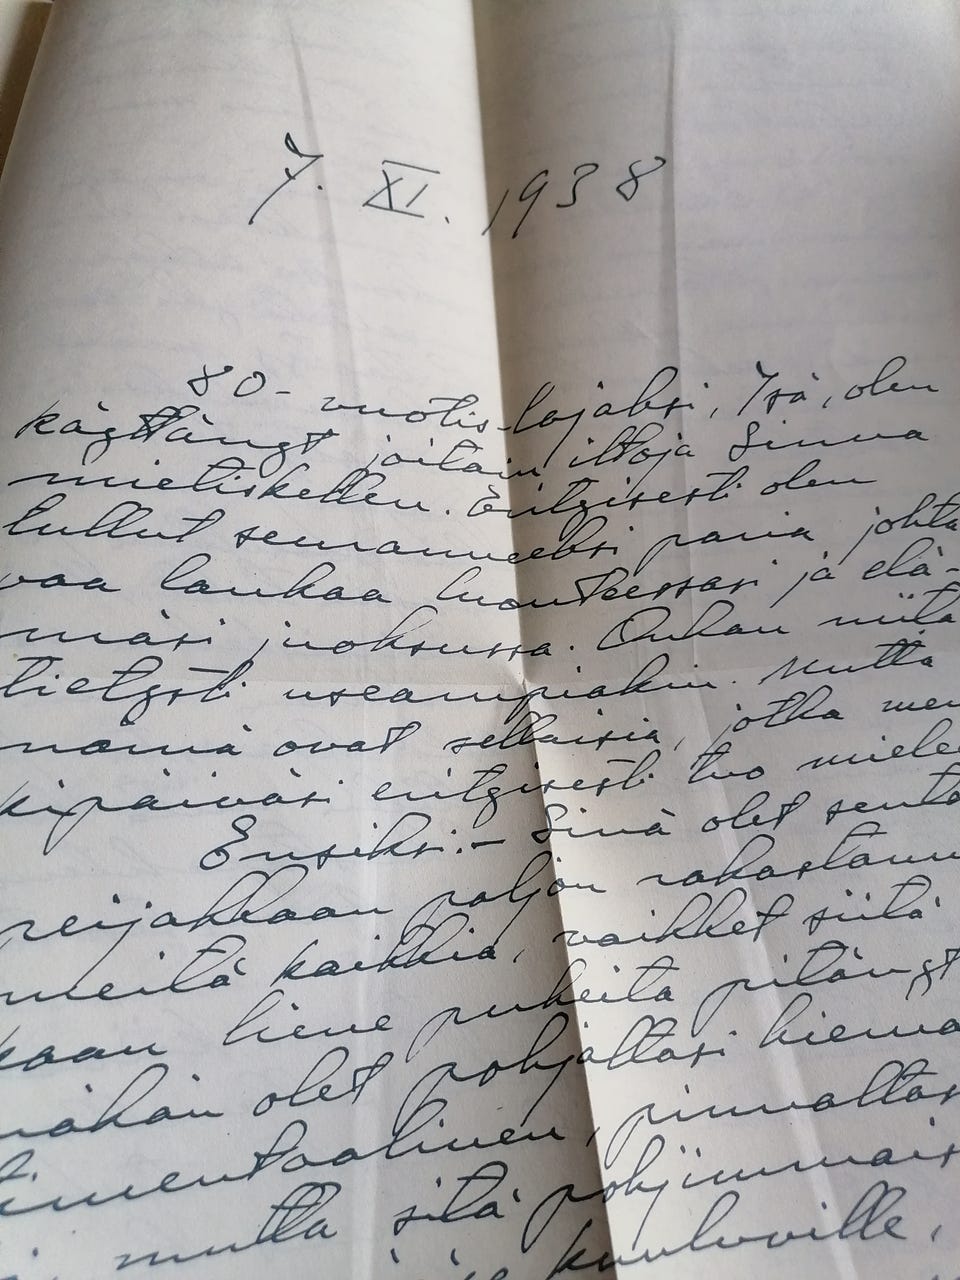 7. XI. 1938
80-vuotis-lahjaksi, Isä, olen
käyttänyt joitain iltoja Sinua
mietiskellen. Erityisesti olen
tullut seuranneeksi paria johta
vaa lankaa luonteessasi ja elä-
mäsi juoksussa. Onhan niitä
tietysti useampiakin. Mutta
nämä ovat sellaisia, jotka mer
kipäiväsi erityisesti tuo mielee
Ensiksi:- Sinä olet sentä
reijakkaan paljon rakastanu
meitä kaikkia, vaikket siitä
kaan liene puheita pitänyt
nähän olet pohjaltasi hiema
timentaalinen, pinnaltas
mutta sitä pohjimmais
kuuluville,